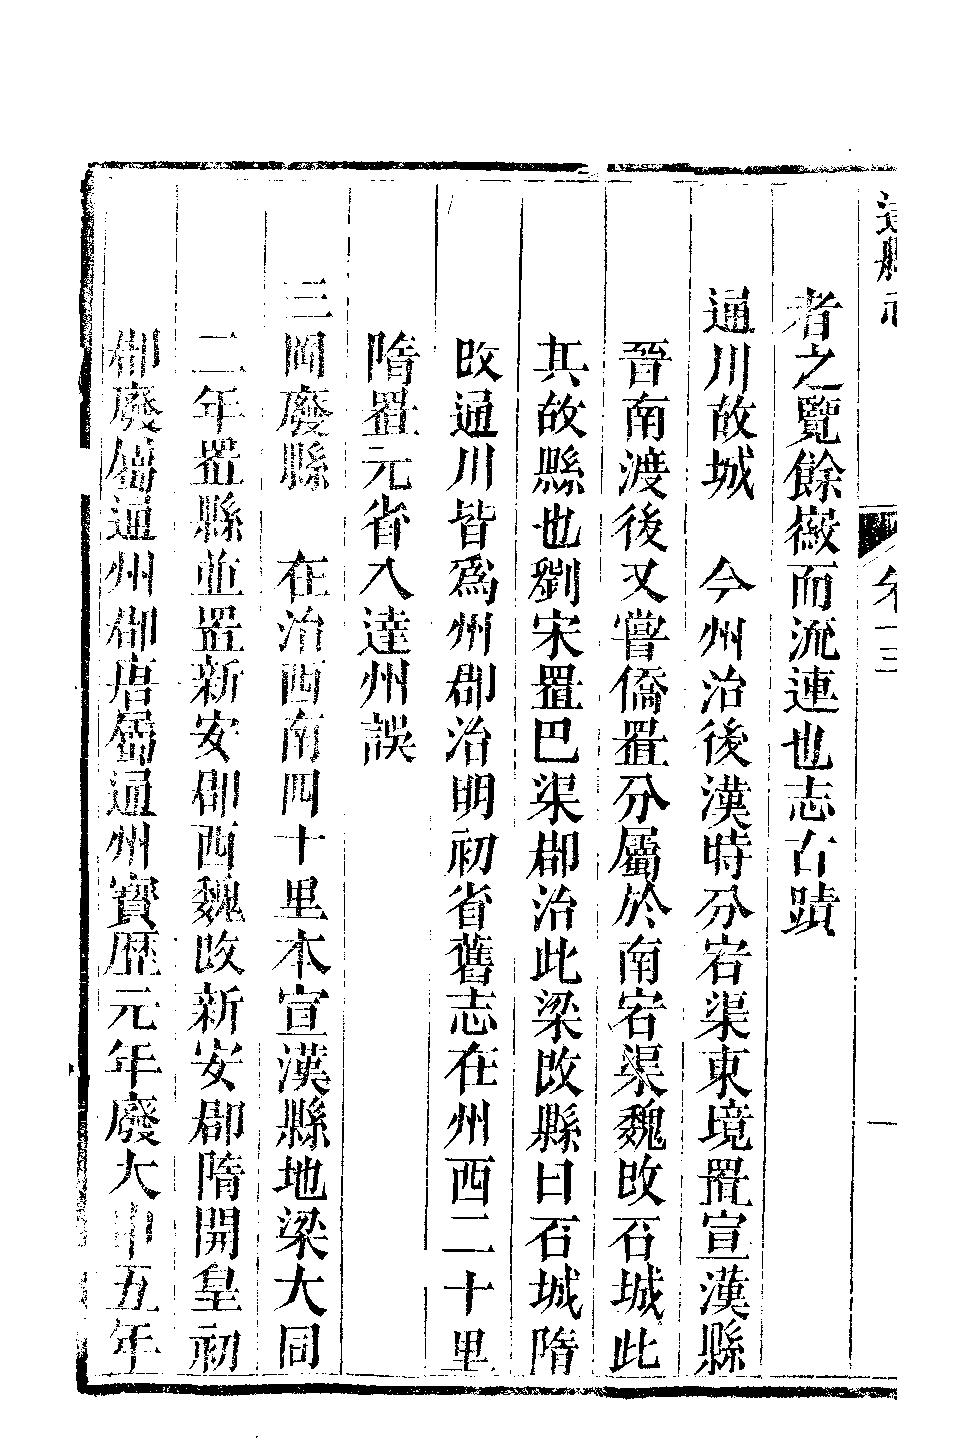 達縣志
卷十三
一
者之覽餘嶶而流連也志古蹟
通川故城　今州治後漢時分宕渠東境置宣漢縣
晉南渡後又嘗僑置分屬於南宕渠魏改石城此
其故縣也劉宋置巴渠郡治此梁改縣曰石城隋
改通川皆爲州郡治明初省舊志在州西二十里
隋置元省入達州誤
三岡廢縣　在治西南四十里本宣漢縣地梁大同
二年置縣並置新安郡西魏改新安郡隋開皇初
郡廢屬通州郡唐屬通州寶歷元年廢大中五年